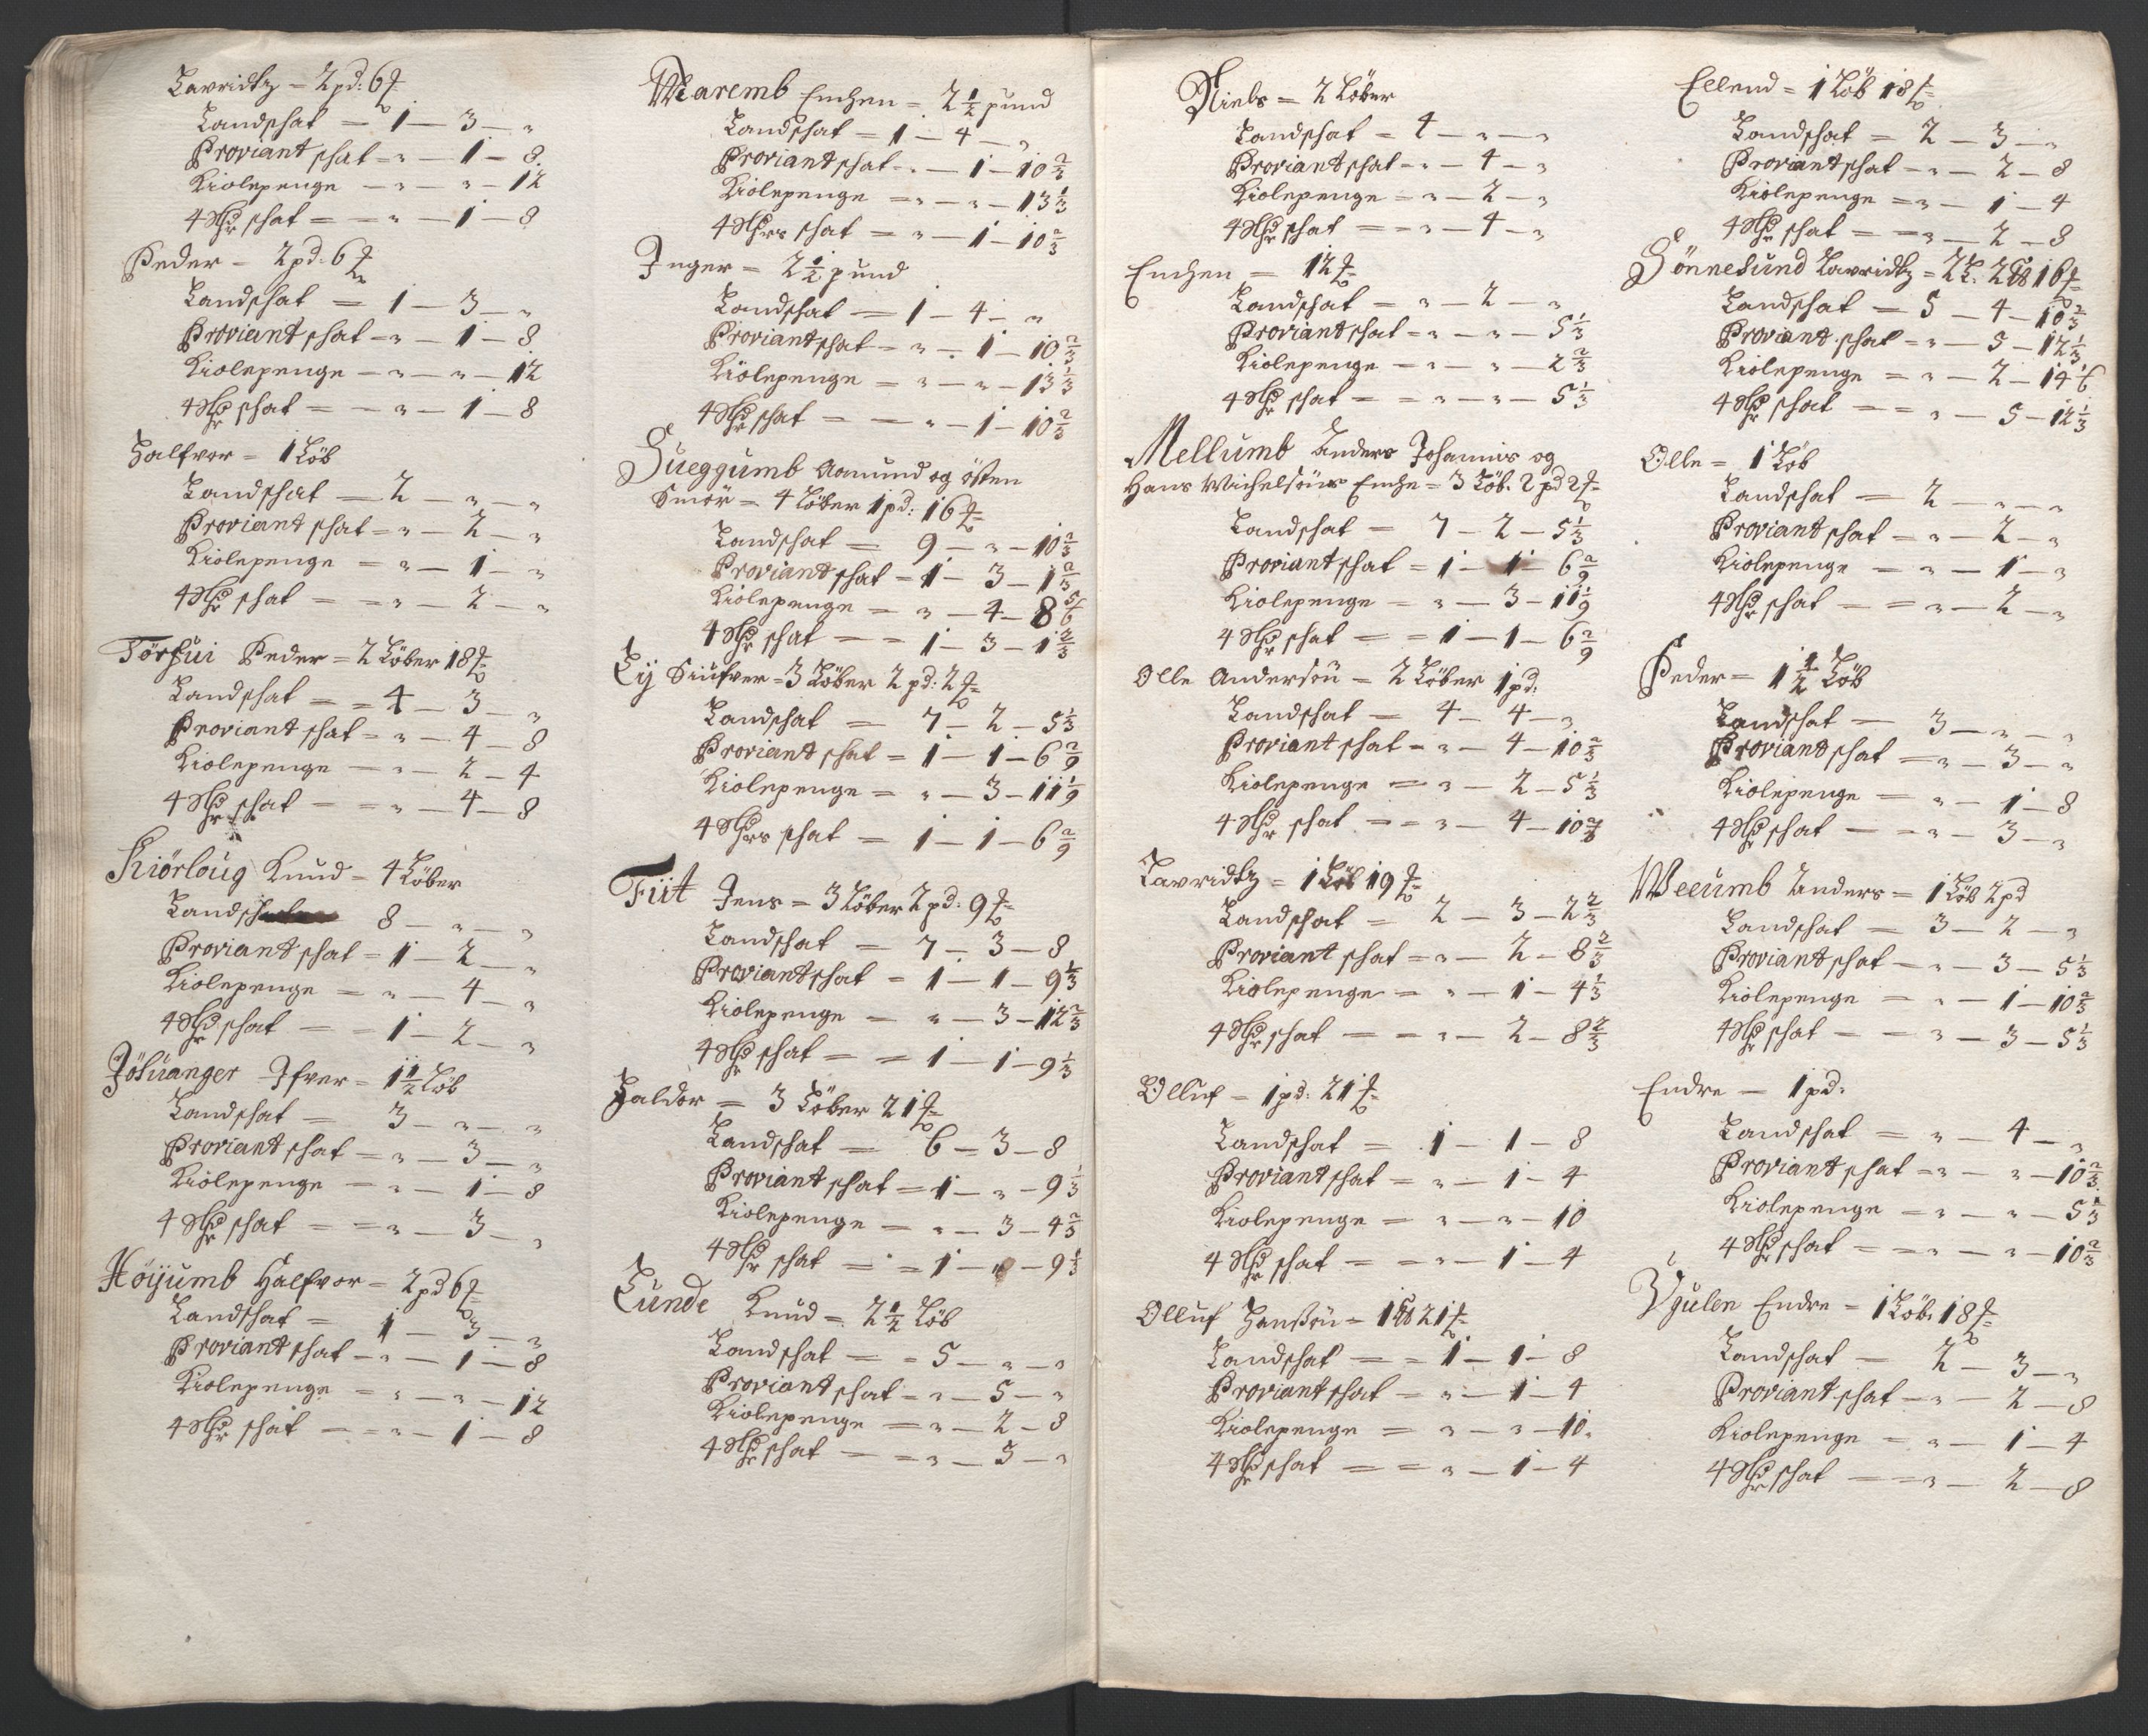 Lavridtz = 2 pd: 6 ℔
Landschat = 1 — 3 — "
Proviant schat = " — 1 — 8
Liolepenge — " — " — 12
4 Rdr schat = = " — 1 — 8
Peder = 2 pd: 6 ℔
Landschat = 1 — 3 — "
Proviant schat = " — 1 — 8
Liolepenge — " — " — 12
4 Rdr schat = — " — 1 — 8
Halfvor = 1 Löb
Landschat — 2 — " — "
Proviant schat = " — 2 — "
Liolepenge = " — 1 — "
4 Rdr schat = = " — 2 — "
Törfüi Peder = 2 Löber 18 ℔
Landschat = = 4 — 3 — "
Proviant schat = " — 4 — 8
Liolepenge — " — 2 — 4
4 Rdr schat = = " — 4 — 8
Kiörloug Knud = 4 Löber
Landschat 8 — " — "
Proviant schat = 1 — 2 — "
Liolepenge = " — 4 — "
4 Rdr schat = = 1 — 2 — "
Jösuanger Ifver = 1 1/2 Löb
Landschat = 3 — " — "
Proviant schat = " — 3 — "
Liolepenge = " — 1 — 8
4 Rdr schat = = " — 3 — "
Höyumb Halfvor = 2 pd 6 ℔
Landschat = 1 — 3 — "
Proviant schat — " — 1 — 8
Liolepenge = " — " — 12
4 Rdr schat — = " — 1 — 8
Waremb Enchen = 2 1/2 pund
Landschat = 1 — 4 — "
Proviant schat = " — 1 — 10 2/3
Liolepenge = " — " — 13 1/3
4 Rdrs schat = " — 1 — 10 2/3
Inger = 2 1/2 pund
Landschat = 1 — 4 — "
Proviant schat = " — 1 — 10 2/3
Liolepenge = " — " — 13 1/3
4 Rdr schat = — " — 1 — 10 2/3
Sueggumb Aamund og östen
Smör = 4 Löber 1 pd: 16 ℔
Landschat = 9 — " — 10 2/3
Proviant schat = 1 — 3 — 1 2/3
Liolepenge = " — 4 — 8 5/6
4 Rdr schat — = 1 — 3 — 1 2/3
Ly Siufver = 3 Löber 2 pd: 2 ℔
Landschat = 7 — 2 — 5 1/3
Proviant schat = 1 — 1 — 6 2/9
Liolepenge = " — 3 — 11 1/9
4 Rdrs schat = 1 — 1 — 6 2/9
Fiit Jens = 3 Löber 2 pd: 9 ℔
Landschat = 7 — 3 — 8
Proviant schat = 1 — 1 — 9 1/3
Liolepenge = " — 3 — 12 2/3
4 Rdr schat = = 1 — 1 — 9 1/3
Haldor = 3 Löber 21 ℔
Landschat = 6 — 3 — 8
Proviant schat = 1 — " — 9 1/3
Liolepenge = " — 3 — 4 2/3
4 Rdr schat = = 1 — " — 9 1/3
Lunde Knud = 2 1/2 Löb
Landschat = = 5 — " — "
Proviant schat = " — 5 — "
Liolepenge = " — 2 — 8
4 Rdr schat = = " — 5 — "
Niels = 2 Löber
Landschat = 4 — " — "
Proviant schat = " — 4 — "
Liolepenge = " — 2 — "
4 Rdr schat = = " — 4 — "
Enchen = 12 ℔
Landschat = " — 2 — "
Proviant schat = " — " — 5 1/3
Liolepenge = " — " — 2 2/3
4 Rdr schat = = " — " — 5 1/3
Mellumb Anders Johannis og
Hans Michelsöns Enche = 3 Löb. 2 pd 2 ℔
Landschat = 7 — 2 — 5 1/3
Proviant schat = 1 — 1 — 6 2/9
Liolepenge = " — 3 — 11 1/9
4 Rdr schat = = 1 — 1 — 6 2/9
Olle Andersön = 2 Löber 1 pd:
Landschat = 4 — 4 — "
Proviant schat = " — 4 — 10 2/3
Liolepenge = " — 2 — 5 1/3
4 Rdr schat = = " — 4 — 10 2/3
Lavridtz = 1 Löb 19 ℔
Landschat = 2 — 3 — 2 2/3
Proviant schat = " — 2 — 8 2/3
Liolepenge = " — 1 — 4 1/3
4 Rdr schat = = " — 2 — 8 2/3
Olluf = 1 pd: 21 ℔
Landschat = 1 — 1 — 8
Proviant schat = " — 1 — 4
Liolepenge = " — " — 10
4 Rdr schat = = " — 1 — 4
Olluf Hansön = 1 pd 21 ℔
Landschat = = 1 — 1 — 8
Proviant schat = " — 1 — 4
Liolepenge = " — " — 10
4 Rdr schat = = " — 1 — 4
Ellend = 1 Löb 18 ℔
Landschat = 2 — 3 — "
Proviant schat = " — 2 — 8
Liolepenge = " — 1 — 4
4 Rdr schat = = " — 2 — 8
Sönnesund Lavridtz = 2 L: 2 pd 16 ℔
Landschat = 5 — 4 — 10 2/3
Proviant schat = " — 5 — 12 1/3
Liolepenge = " — 2 — 14 1/6
4 Rdr schat = = " — 5 — 12 1/3
Olle = 1 Löb
Landschat = 2 — " — "
Proviant schat = " — 2 — "
Liolepenge = " — 1 — "
4 Rdr schat = = " — 2 — "
Peder = 1 1/2 Löb
Landschat = 3 — " — "
Proviant schat = " — 3 — "
Liolepenge = " — 1 — 8
4 Rdr schat = = " — 3 — "
Weeumb Anders = 1 Löb 2 pd
Landschat = 3 — 2 — "
Proviant schat = " — 3 — 5 1/3
Liolepenge = " — 1 — 10 2/3
4 Rdr schat = = " — 3 — 5 1/3
Endre = 1 pd:
Landschat = " — 4 — "
Proviant schat = " — " — 10 2/3
Liolepenge = " — " — 5 1/3
4 Rdr schat = = " — " — 10 2/3
Ygulen Endre = 1 Löb. 18 ℔
Landschat = 2 — 3 — "
Proviant schat = " — 2 — 8
Liolepenge = " — 1 — 4
4 Rdr schat = = " — 2 — 8